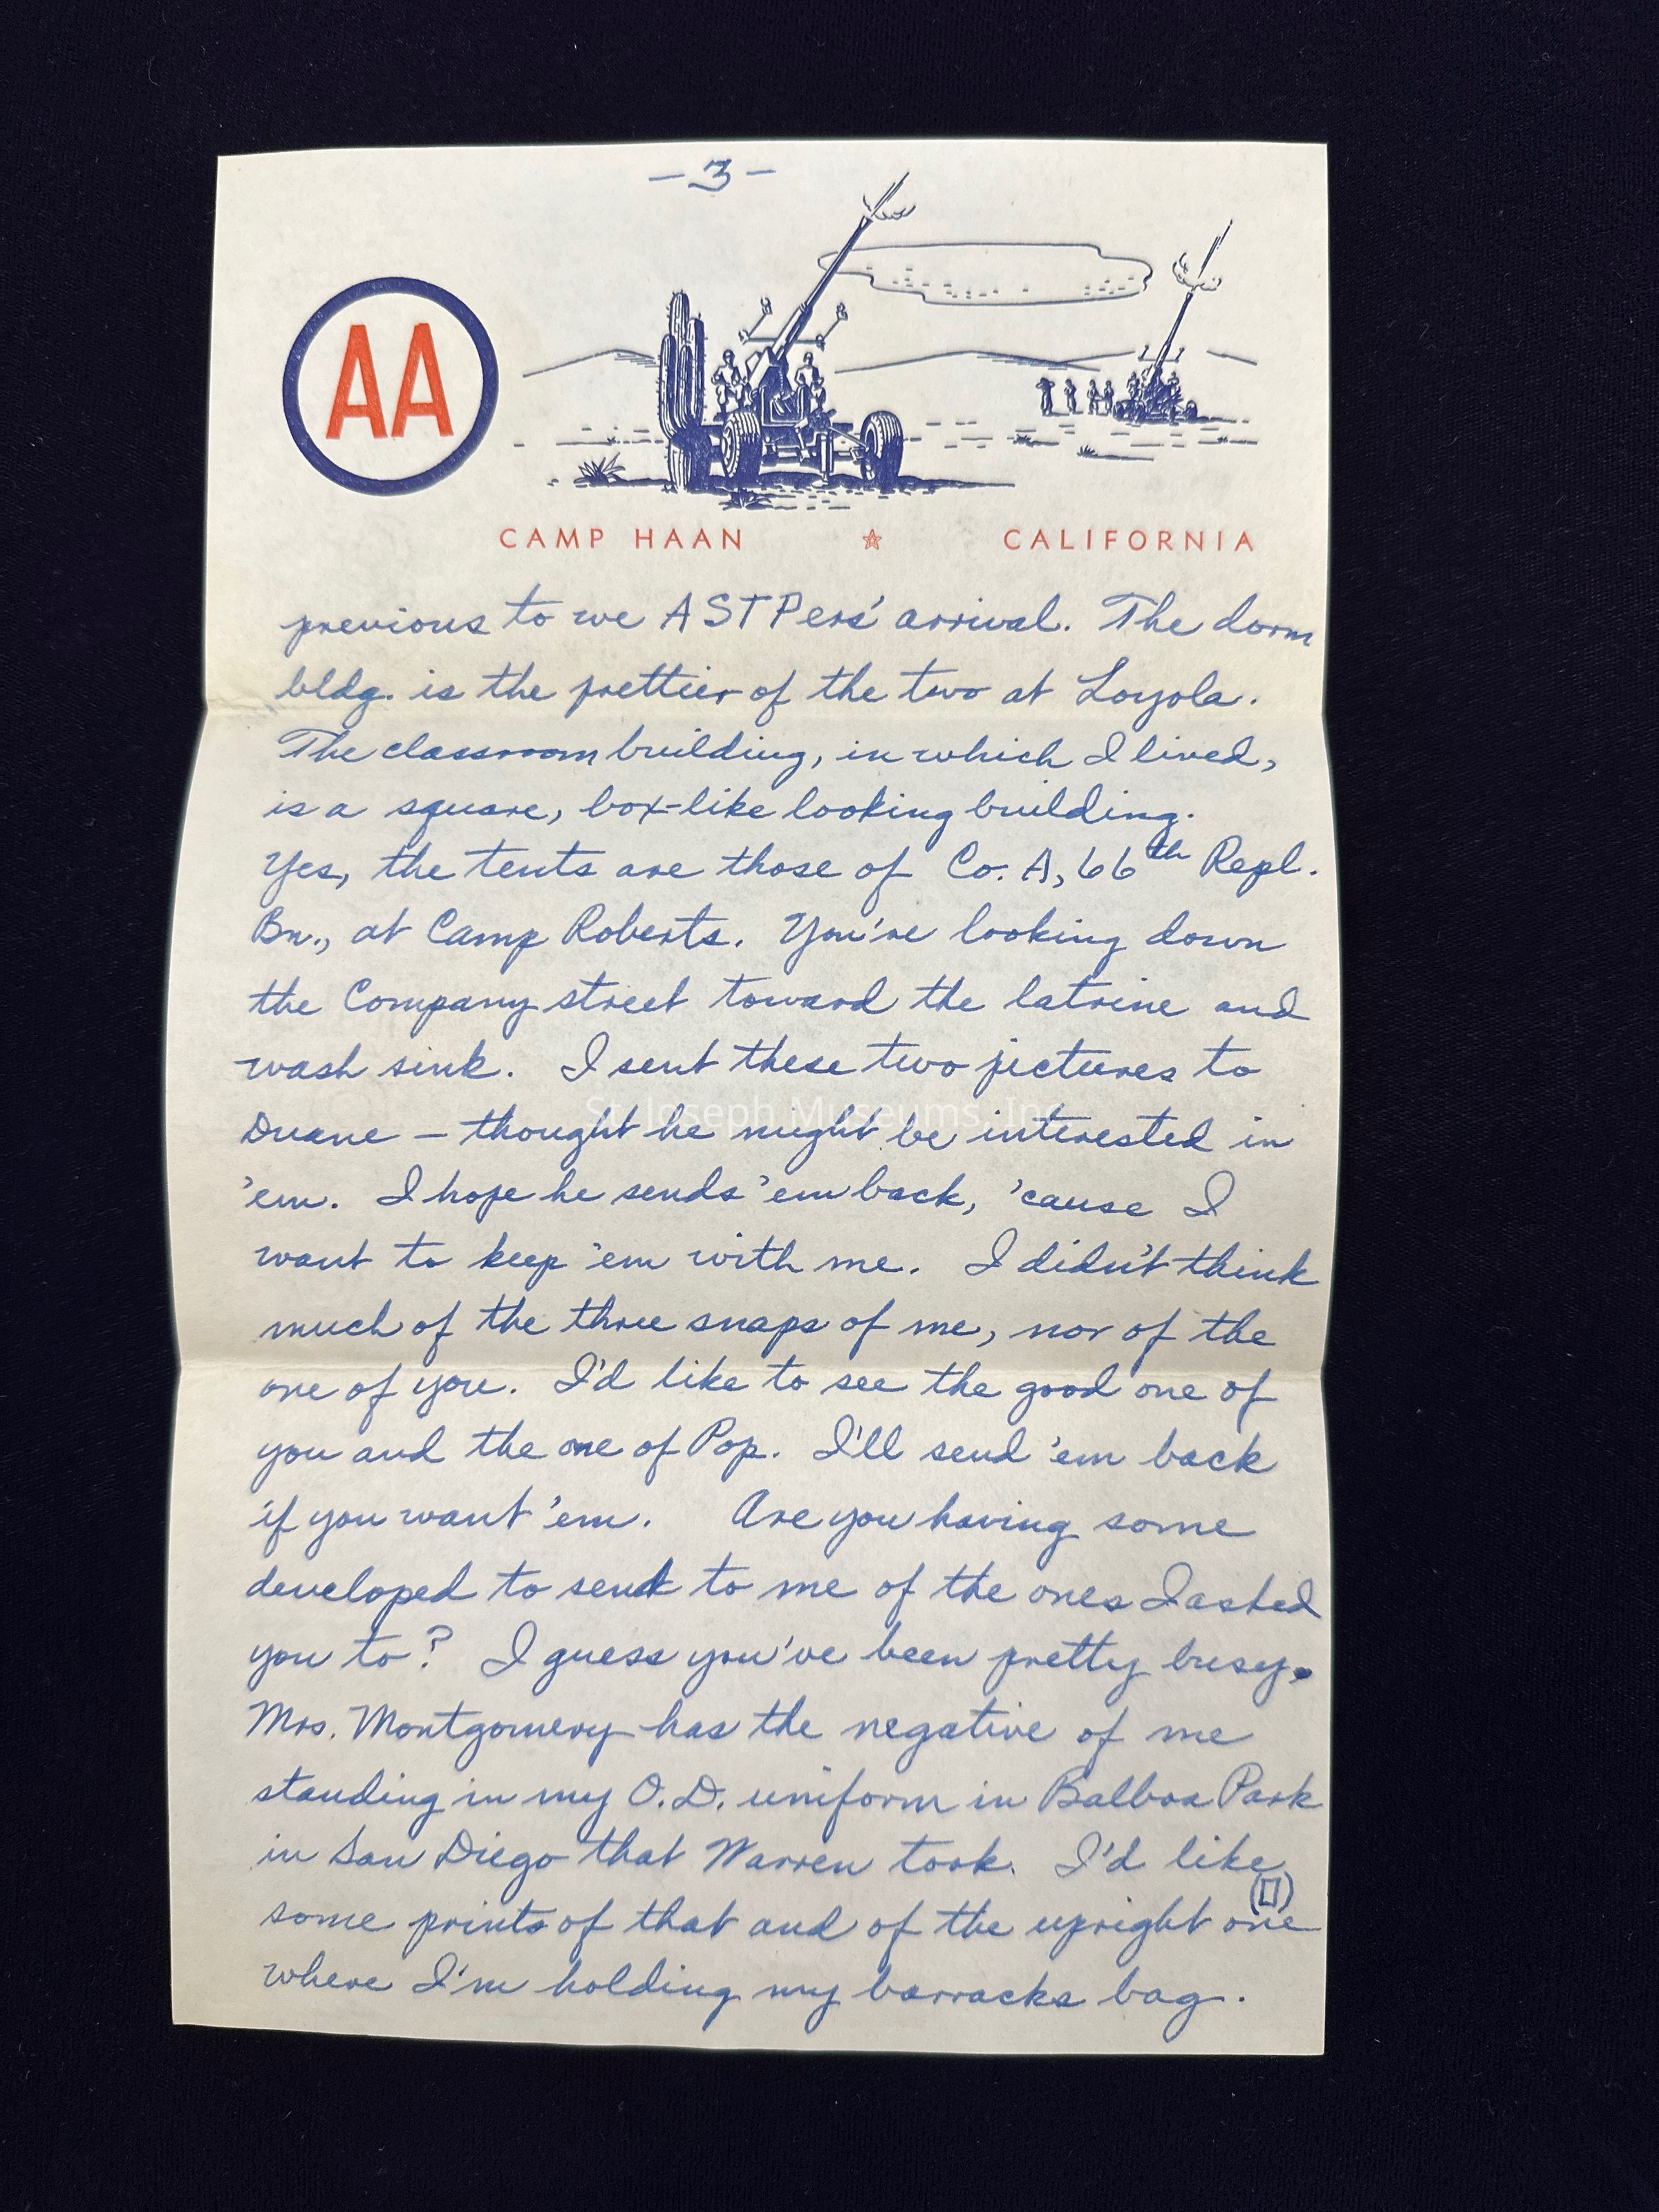 -3-
AA
CAMP HAAN ☆ CALIFORNIA
previous to we ASTPers' arrival. The dorm
bldg. is the prettier of the two at Loyola.
The classroom building, in which I lived,
is a square, box-like looking building.
Yes, the tents are those of Co. A, 66th Repl.
Bn., at Camp Roberts. You're looking down
the Company street toward the latrine and
wash sink. I sent these two pictures to
St. Joseph Museums, Inc.
Duane – thought he might be interested in
'em. I hope he sends 'em back, 'cause I
want to keep 'em with me. I didn't think
much of the three snaps of me, nor of the
one of you. I'd like to see the good one of
you and the one of Pop. I'll send 'em back
if you want 'em. Are you having some
developed to send to me of the ones I asked
you to? I guess you've been pretty busy.
Mrs. Montgomery has the negative of me
standing in my O.D. uniform in Balboa Park
in San Diego that Warren took. I'd like
some prints of that and of the upright one (▯)
where I'm holding my barracks bag.